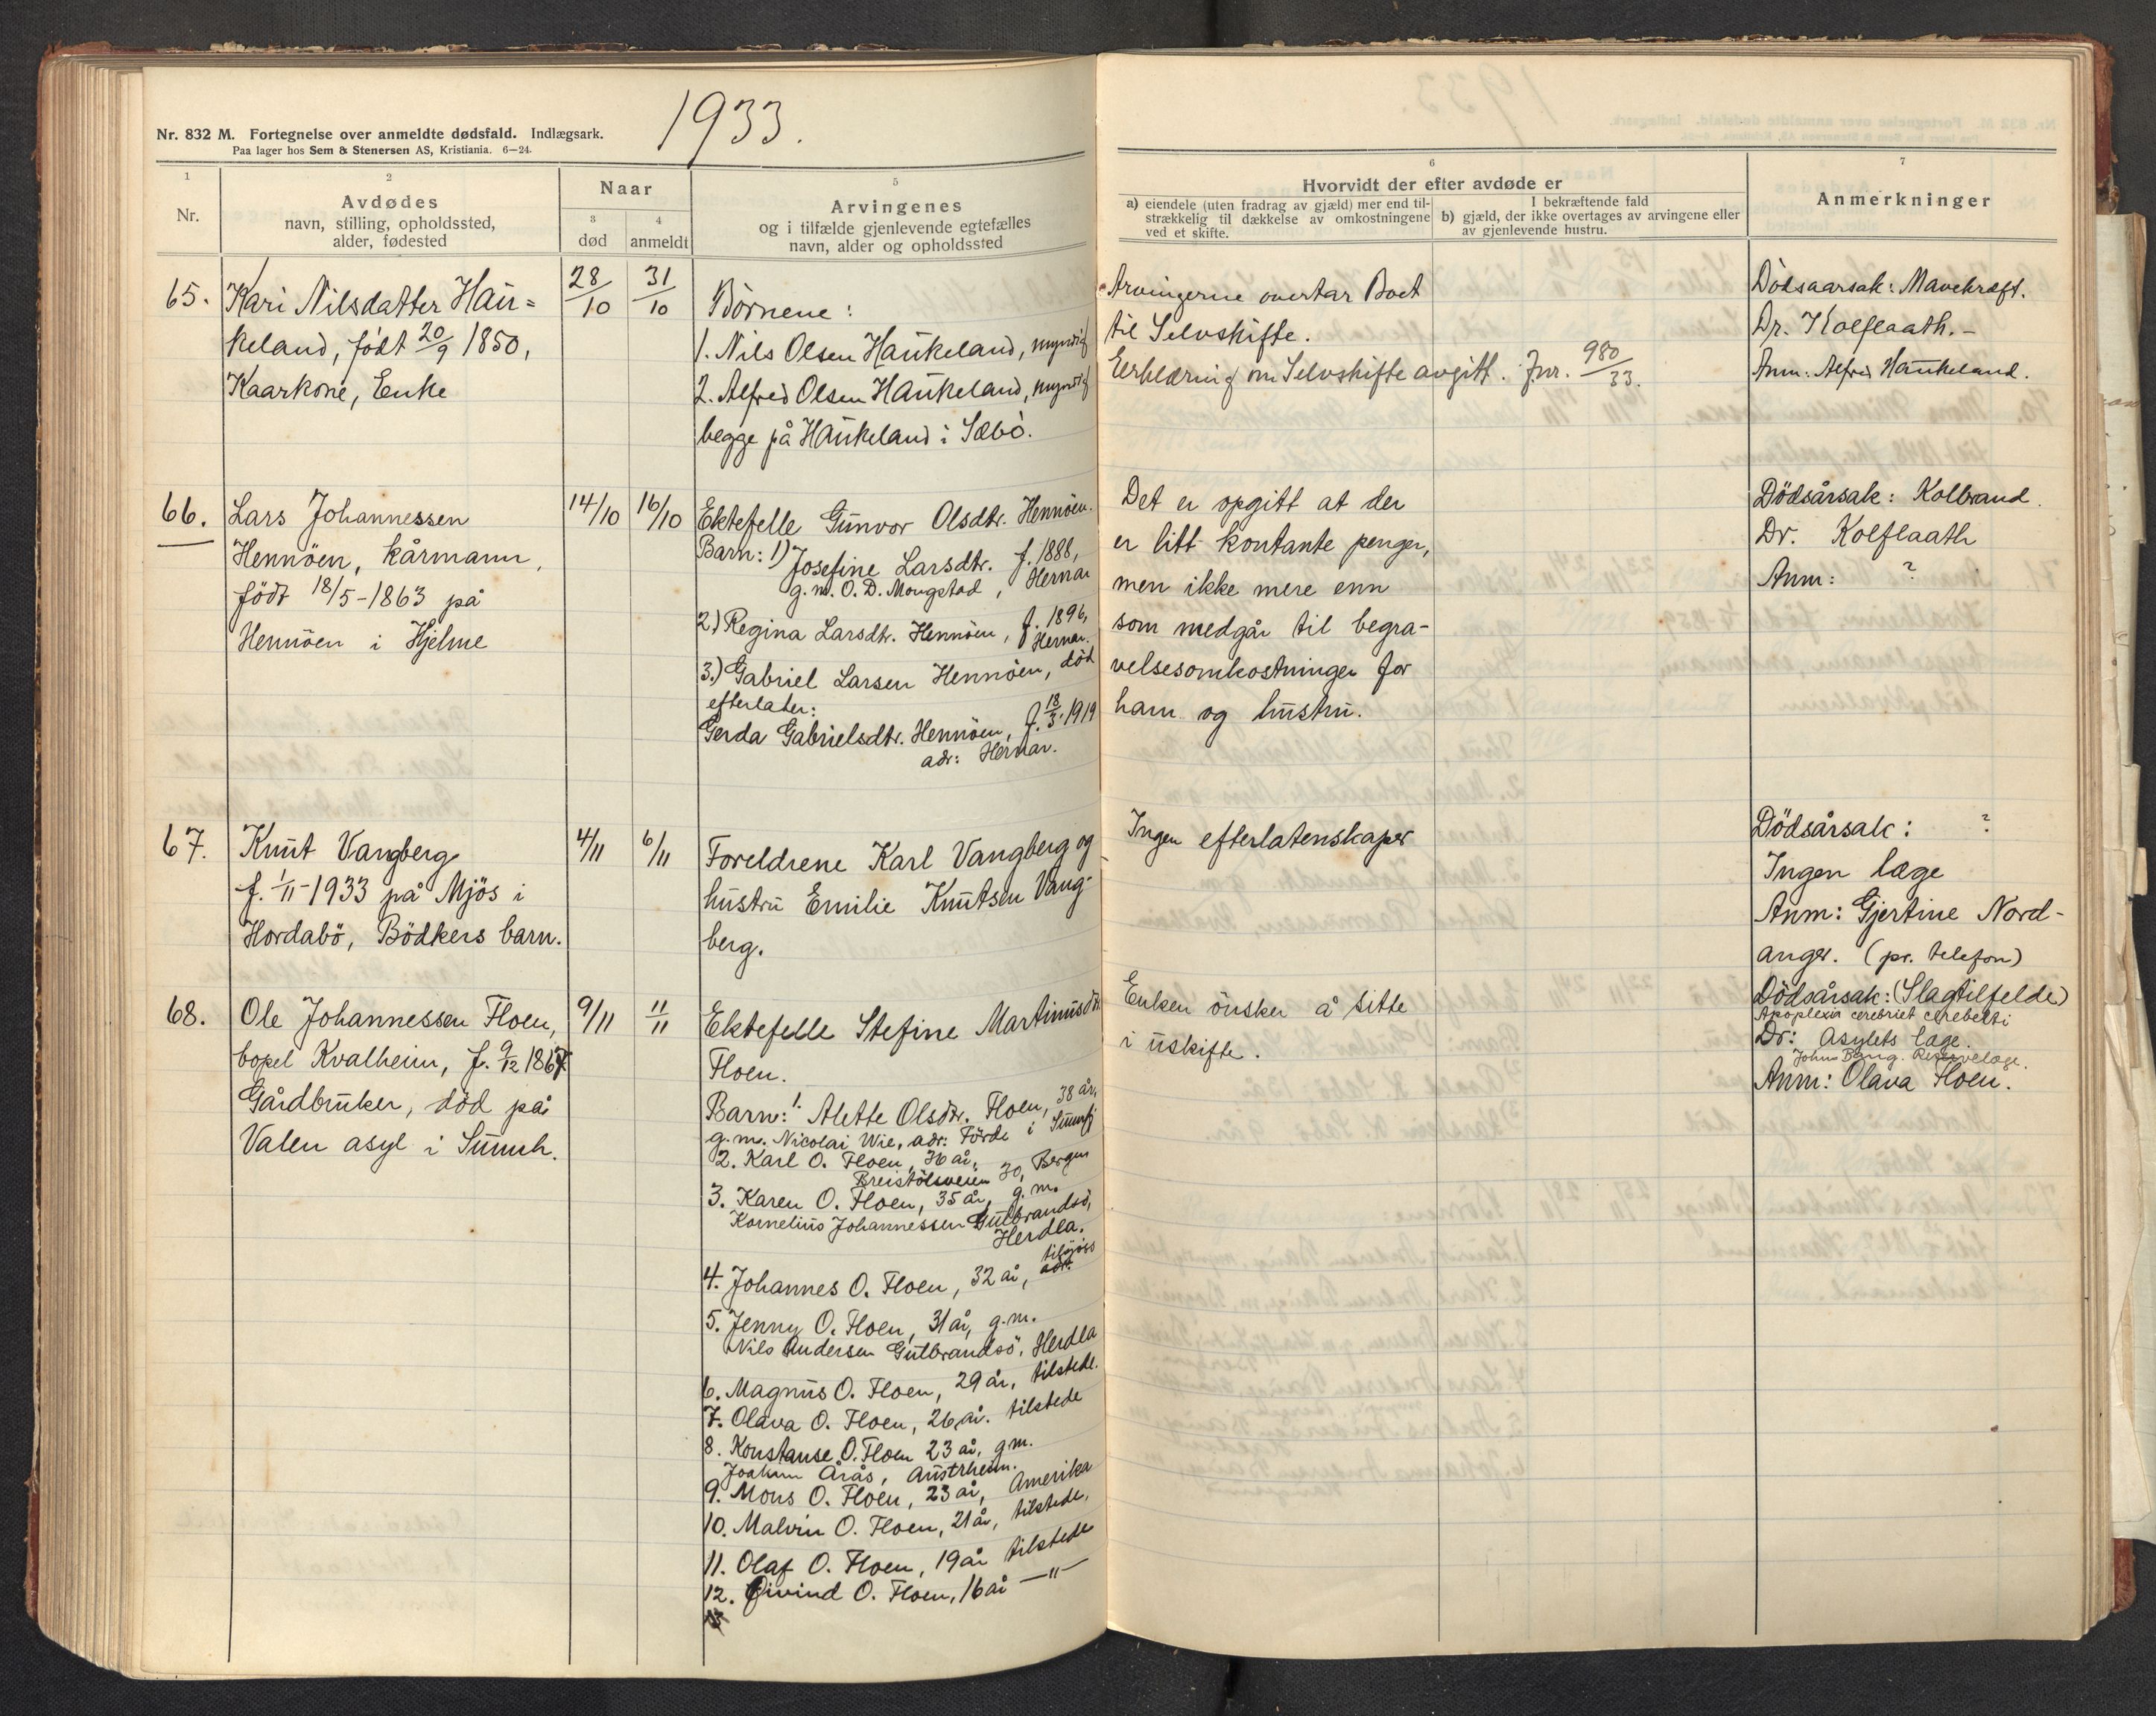 1933.
Nr. 832 M. Fortegnelse over anmeldte dødsfald. Indlægsark.
Paa lager hos Sem & Stenersen AS, Kristiania. 6—24.
1
Nr.
2
Avdødes
navn, stilling, opholdssted,
alder, fødested
Naar
3
død
4
anmeldt
5
Arvingenes
og i tilfælde gjenlevende egtefælles
navn, alder og opholdssted
6
Hvorvidt der efter avdøde er
a) eiendele (uten fradrag av gjæld) mer end til-
strækkelig til dækkelse av omkostningene
ved et skifte.
I bekræftende fald
b) gjæld, der ikke overtages av arvingene eller
av gjenlevende hustru.
7
Anmerkninger
65.
Kari Nilsdatter Hau-
keland, født 20/9 1850,
Kaarkone, Enke
28/10
31/10
Börnene:
1. Nils Olsen Haukeland, myndig
2. Alfred Olsen Haukeland, myndig
begge på Haukeland i Sæbö.
Arvingerne overtar Boet
til Selvskifte.
Eerklæring om Selvskifte avgitt. Jnr. 980/33.
Dödsaarsak: Mavekræft.
Dr. Kolflaath.-
Anm: Alfred Haukeland.
66.
Lars Johannessen
Hennöen, kårmann,
födt 18/5-1863 på
Hennöen i Hjelme
14/10
16/10
Ektefelle Gunvor Olsdtr. Hennöen.
Barn: 1) Josefine Larsdtr. f. 1888,
g.m. O. D. Mongstad, Hernar
2) Regina Larsdtr. Hennöen, f. 1896,
Hernar.
3.) Gabriel Larsen Hennöen, död
efterlater:
Gerda Gabrielsdtr. Hennöen, f. 18/3-1919
adr: Hernar.
Det er opgitt at der
er litt kontante penger,
men ikke mere enn
som medgår til begra-
velsesomkostninger for
ham og hustru.
Dödsårsak: Kolbrand.
Dr. Kolflaath
Anm: ?
67.
Knut Vangberg
f. 1/11-1933 på Mjös i
Hordabö, Bödkers barn.
4/11
6/11
Foreldrene Karl Vangberg og
hustru Emilie Knutsen Vang-
berg.
Ingen efterlatenskaper
Dödsårsak: ?
Ingen læge
Anm: Gjertine Nord-
anger. (pr. telefon)
68.
Ole Johannessen Floen,
bopel Kvalheim, f. 9/12 1867
Gårdbruker, död på
Valen asyl i Sunnh.
9/11
11/11
Ektefelle Stefine Martinusdtr.
Floen.
Barn: 1. Alette Olsdtr. Floen, 38 år,
g.m. Nicolai Wie, adr: Förde i Sunnfj
2. Karl O. Floen, 36 år,
Breistölsveien 30, Bergen
3. Karen O. Floen, 35 år, g.m.
Kornelius Johannessen Gulbrandsö,
Herdla.
4. Johannes O. Floen, 32 år, adr.
tilsjös
5. Jenny O. Floen, 31 år, g.m.
Nils Andersen Gulbrandsö, Herdla
6. Magnus O. Floen, 29 år, tilstede.
7. Olava O. Floen, 26 år. tilstede
8. Konstanse O. Floen 23 år, g.m.
Joakim Årås, Austrheim.
9. Mons O. Floen, 23 år, Amerika
10. Malvin O. Floen, 21 år, tilstede,
11. Olaf O. Floen, 19 år tilstede
12. Öivind O. Floen, 16 år —"—
Enken önsker å sitte
i uskifte.
Dödsårsak: (Slagtilfelde)
Apoplexia cerebriet cerebelli
Dr: Asylets læge.
John Bang. Reservelæge.
Anm: Olava Floen.